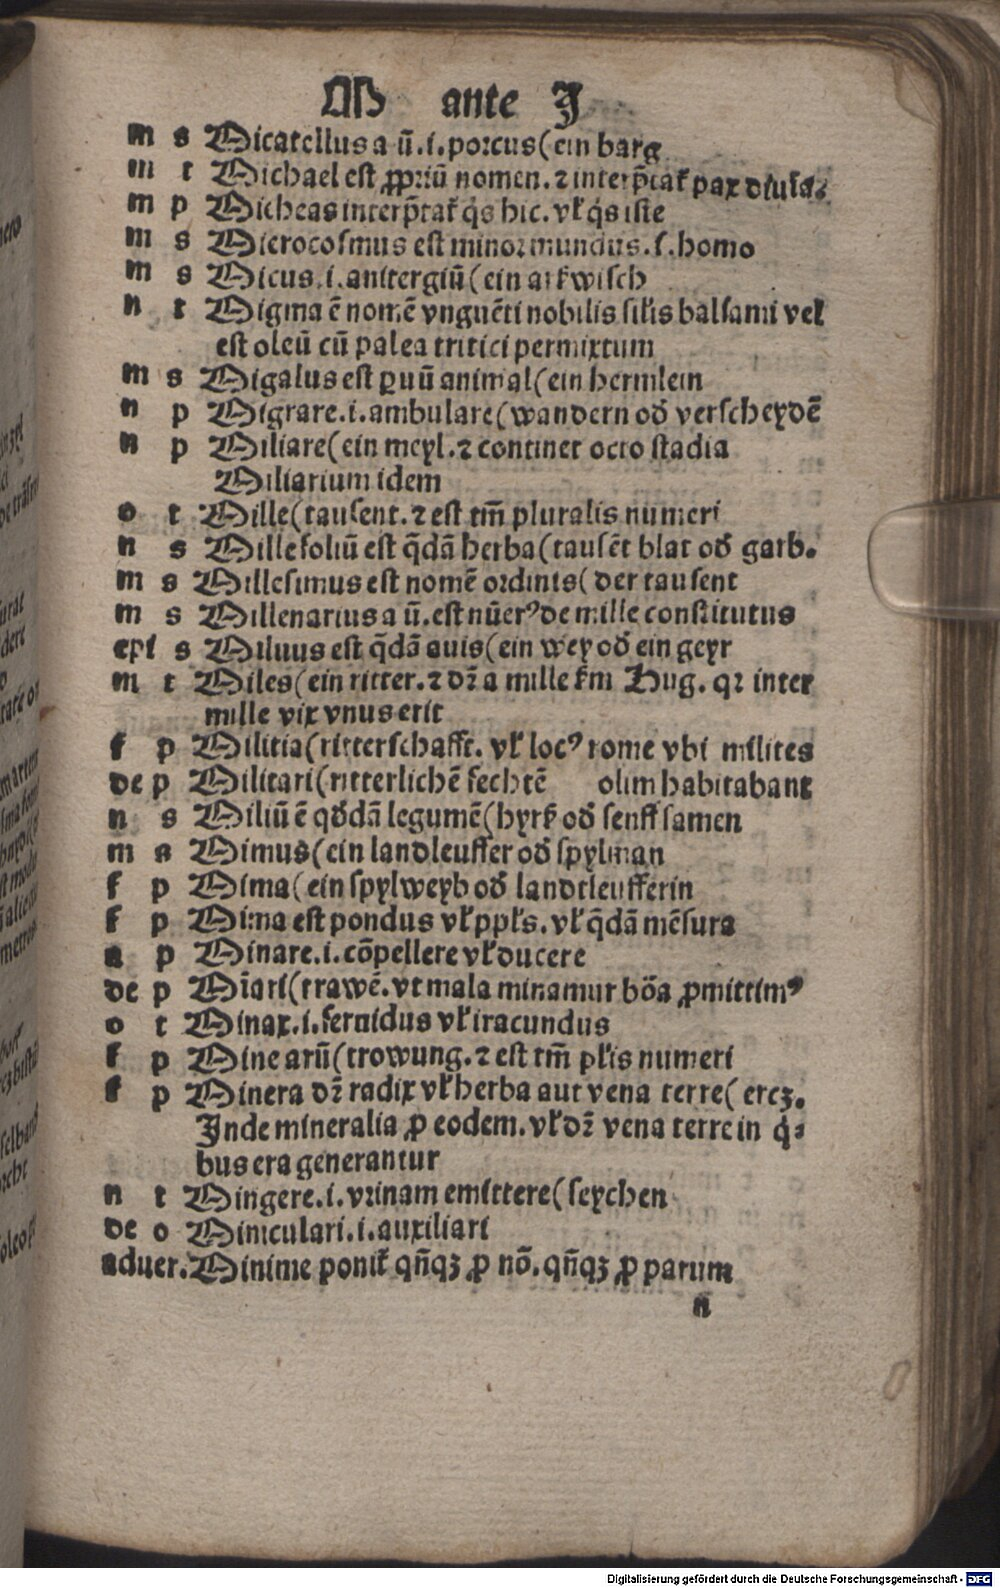 M ante I
m s Micatellus a ū. i. porcus (ein barg
m t Michael est ꝓpriū nomen. ⁊ interp̄tat᷑ pax diuīa.
m p Micheas interp̄tat᷑ q̇s hic. vł q̇s iste
m s Microcosmus est minor mundus. s. homo
m s Micus. i. anitergiū (ein arßwisch
n t Migma ē nomē vnguēti nobilis silis balsami vel
est oleū cū palea tritici permixtum
m s Migalus est ꝑuū animal (ein hermlein
n p Migrare. i. ambulare (wandern od̄ verscheydē
n p Miliare (ein meyl. ⁊ continet octo stadia
Miliarium idem
o t Mille (tausent. ⁊ est tm̄ pluralis numeri
n s Millefoliū est q̄dā herba (tausēt blat od̄ garb.
m s Millesimus est nomē ordinis (der tausent
m s Millenarius a ū. est nūerꝰ de mille constitutus
epi s Miluus est q̄dā auis (ein wey od̄ ein geyr
m t Miles (ein ritter. ⁊ dr̄ a mille km̄ Hug. qꝛ inter
mille vix vnus erit
f p Militia (ritterschafft. vł locꝰ rome vbi milites
de p Militari (ritterlichē fechtē olim habitabant
n s Miliū ē qd̄dā legumē (hyrß od̄ senff samen
m s Mimus (ein landleuffer od̄ spylman
f p Mima (ein spylweyb od̄ landtleufferin
f p Mima est pondus vł ppls. vł q̄dā mēsura
a p Minare. i. cōpellere vł ducere
de p Mīari (trawē. vt mala minamur bōa ꝓmittimꝰ
o t Minax. i. feruidus vł iracundus
f p Mine arū (trowung. ⁊ est tm̄ plis numeri
f p Minera dr̄ radix vł herba aut vena terre (ercz.
Inde mineralia ꝓ eodem. vł dr̄ vena terre in q̇⸗
bus era generantur
n t Mingere. i. vrinam emittere (seychen
de o Miniculari. i. auxiliari
aduer. Minime ponit᷑ qn̄qꝫ ꝓ nō. qn̄qꝫ ꝓ parum
n
Digitalisierung gefördert durch die Deutsche Forschungsgemeinschaft - DFG